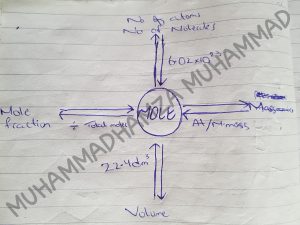 No of atoms
No of Molecules
6.02x10²³
Mole
fraction
÷ Total moles
MOLE
At/M.mass
22.4dm³
Volume
MUHAMMADHAMZA MUHAMMAD